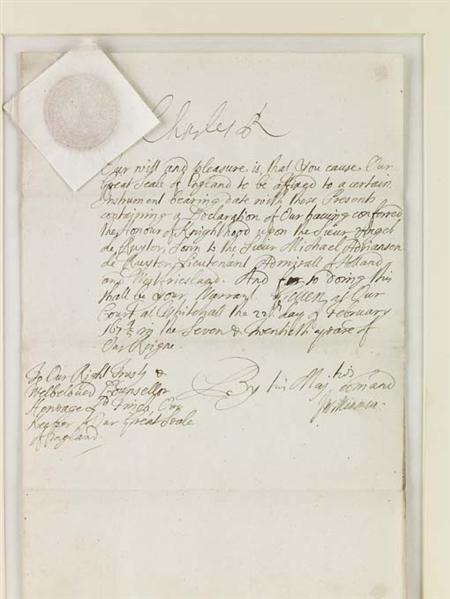 Charles R
Our will and pleasure is, that You cause Our
Great Seale of England to be affixed to a certain
Instrument bearing date with these Presents
containing a Declaration of Our having conferred
the Honour of Knighthood upon the Sieur
de Ruyter, Sonn to the Sieur Michael Adriansen
de Ruyter Lieutenant Admirall of Holland
and West friesland. And for so doing this
shall be your Warrant. Given at Our
Court at Whitehall the day of February
167¾ in the Seven & Twentieth yeare of
Our Reigne
To Our Right Trusty &
Welbeloved Counsellor
Heneage Ld Finch
Keeper of Our Great Seale
of England.
By his Mats comand